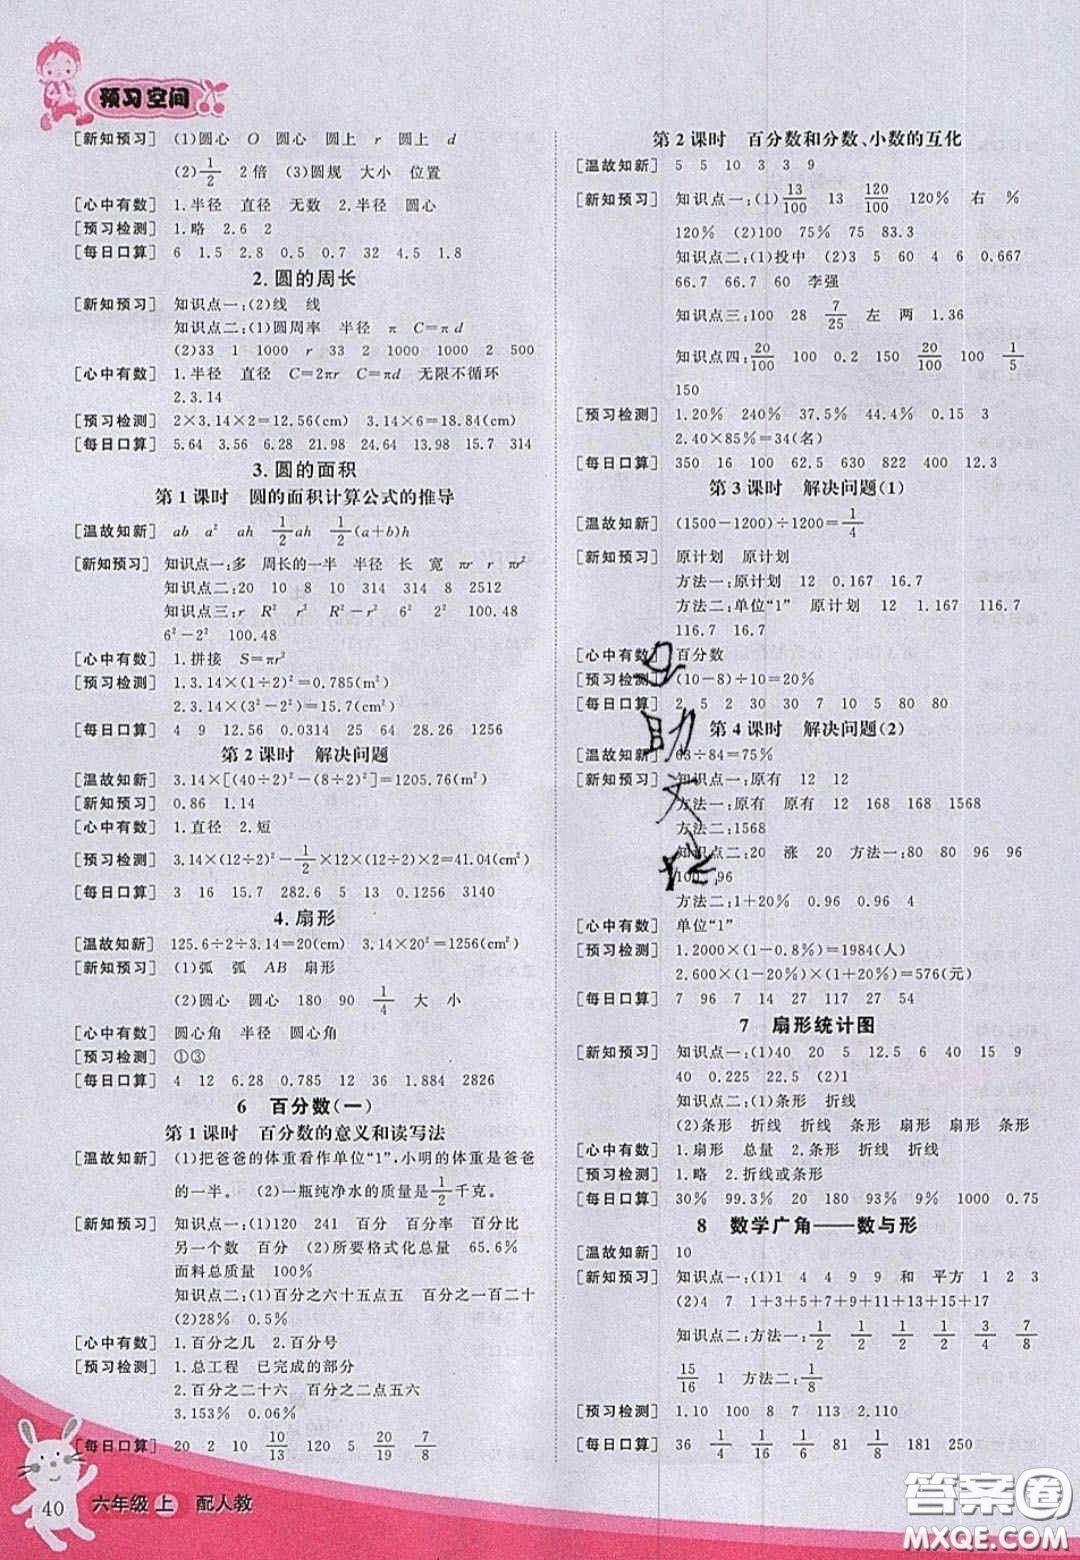 预习空间
[新知预习] (1)圆心 O 圆心 圆上 r 圆上 d
(2)1/2 2倍 (3)圆规 大小 位置
[心中有数] 1.半径 直径 无数 2.半径 圆心
[预习检测] 1.略 2.6 2
[每日口算] 6 1.5 2.8 0.5 0.7 32 4.5 1.8
2.圆的周长
[新知预习] 知识点一:(2)线 线
知识点二:(1)圆周率 半径 π C=πd
(2)33 1 1000 r 33 2 1000 11 2 500
[心中有数] 1.半径 直径 C=2πr C=πd 无限不循环
2.3.14
[预习检测] 2×3.14×2=12.56(cm) 3.14×6=18.84(cm)
[每日口算] 5.64 3.56 6.28 21.98 24.64 13.98 15.7 314
3.圆的面积
第1课时 圆的面积计算公式的推导
[温故知新] ab a² ah 1/2ah 1/2(a+b)h
[新知预习] 知识点一:多 周长的一半 半径 长 宽 πr πr²
知识点二:20 10 8 10 314 314 8 2512
知识点三:r R² R²-r² R²-r² 6² 2²
6²-2² 100.48
[心中有数] 1.拼接 S=πr²
[预习检测] 1.3.14×(1÷2)²=0.785(m²)
2.3.14×(3²-2²)=15.7(m²)
[每日口算] 4 9 7 90 0.0314 28 0.04 28.26 1256
第2课时 解决问题
[温故知新] 3.14×[(40÷2)²-(8÷2)²]=1205.76(m²)
[新知预习] 0.86 1.14
[心中有数] 1.直径 2.短
[预习检测] 3.14×(12÷2)²-1/2×12×(12÷2)×2=41.04(cm²)
[每日口算] 3 16 15.7 282.6 5 13 0.1256 3140
4.扇形
[温故知新] 125.6÷2÷3.14=20(cm) 3.14×20²=1256(cm²)
[新知预习] (1)弧 弧 AB 扇形
(2)圆心 圆心 180 90 1/4 大 小
[心中有数] 圆心角 半径 圆心角
[预习检测] ①③
[每日口算] 4 12 6.28 0.785 12 36 1.884 2826
6 百分数(一)
第1课时 百分数的意义和读写法
[温故知新] (1)把爸爸的体重看作单位“1”,小明的体重是爸爸
的一半。 (2)一瓶纯净水的质量是1/2千克。
[新知预习] 知识点一:(1)120 241 百分 百分率 百分比
另一个数 百分 (2)所要格式化总量 65.6%
面料总质量 100%
知识点二:(1)百分之六十五点五 百分之一百二十
(2)28% 0.5%
[心中有数] 1.百分之几 2.百分号
[预习检测] 1.总工程 已完成的部分
2.百分之二十六 百分之二点五六
3.153% 0.06%
[每日口算] 20 2 10 10/13 120 5 20/19 7/8
40 六年级 上 配人教
第2课时 百分数和分数、小数的互化
[温故知新] 5 5 10 3 3 9
[新知预习] 知识点一:(1)13/100 13 120/100 120% 右 %
120% (2)100 75% 75 83.3
知识点二:(1)投中 (2)3 5 60 4 6 0.667
66.7 66.7 60 李强
知识点三:100 28 7/25 左 两 1.36
知识点四:20/100 100 0.2 150 20/100 100 1/5
150
[预习检测] 1.20% 240% 37.5% 44.4% 0.15 3
2.40×85%=34(名)
[每日口算] 350 16 100 62.5 630 400 12.3
第3课时 解决问题(1)
[温故知新] (1500-1200)÷1200=1/4
[新知预习] 原计划 原计划
方法一:原计划 12 0.167 16.7
方法二:单位“1” 原计划 12 1.167 116.7
116.7 16.7
[心中有数] 百分数
[预习检测] (10-8)÷10=20%
[每日口算] 2 5 2 30 30 7 10 5 80 80
第4课时 解决问题(2)
[温故知新] 63÷84=75%
[新知预习] 知识点一:原有 12 12
方法一:原有 原有 12 168 168 1568
方法二:1568
知识点二:20 涨 20 方法一:80 80 96 96
100 96
方法二:1+20% 0.96 0.96 4
[心中有数] 单位“1”
[预习检测] 1.2000×(1-0.8%)=1984(人)
2.600×(1-20%)×(1+20%)=576(元)
[每日口算] 7 96 7 14 27 117 27 54
7 扇形统计图
[新知预习] 知识点一:(1)40 20 5 12.5 6 40 15 9
40 0.225 22.5 (2)1
知识点二:(1)条形 折线
(2)条形 折线 折线 条形 折线 扇形 扇形
[心中有数] 1.扇形 总量 2.条形 折线 折线
[预习检测] 1.略 2.折线或条形
[每日口算] 30% 99.3% 20 180 93% 9% 1000 0.75
8 数学广角——数与形
[温故知新] 10
[新知预习] 知识点一:(1)1 4 4 9 9 和 平方 1 2 3
(2)4 7 1+3+5+7+9+11+13+15+17
知识点二:方法一:1/2 1/2 1/4 3/4 7/8
15/16 1 方法二:1/8
[预习检测] 1.10 100 8 7 113 2.110
[每日口算] 36 1/4 1/6 1/6 81 181 250
答案圈
MXQE.COM